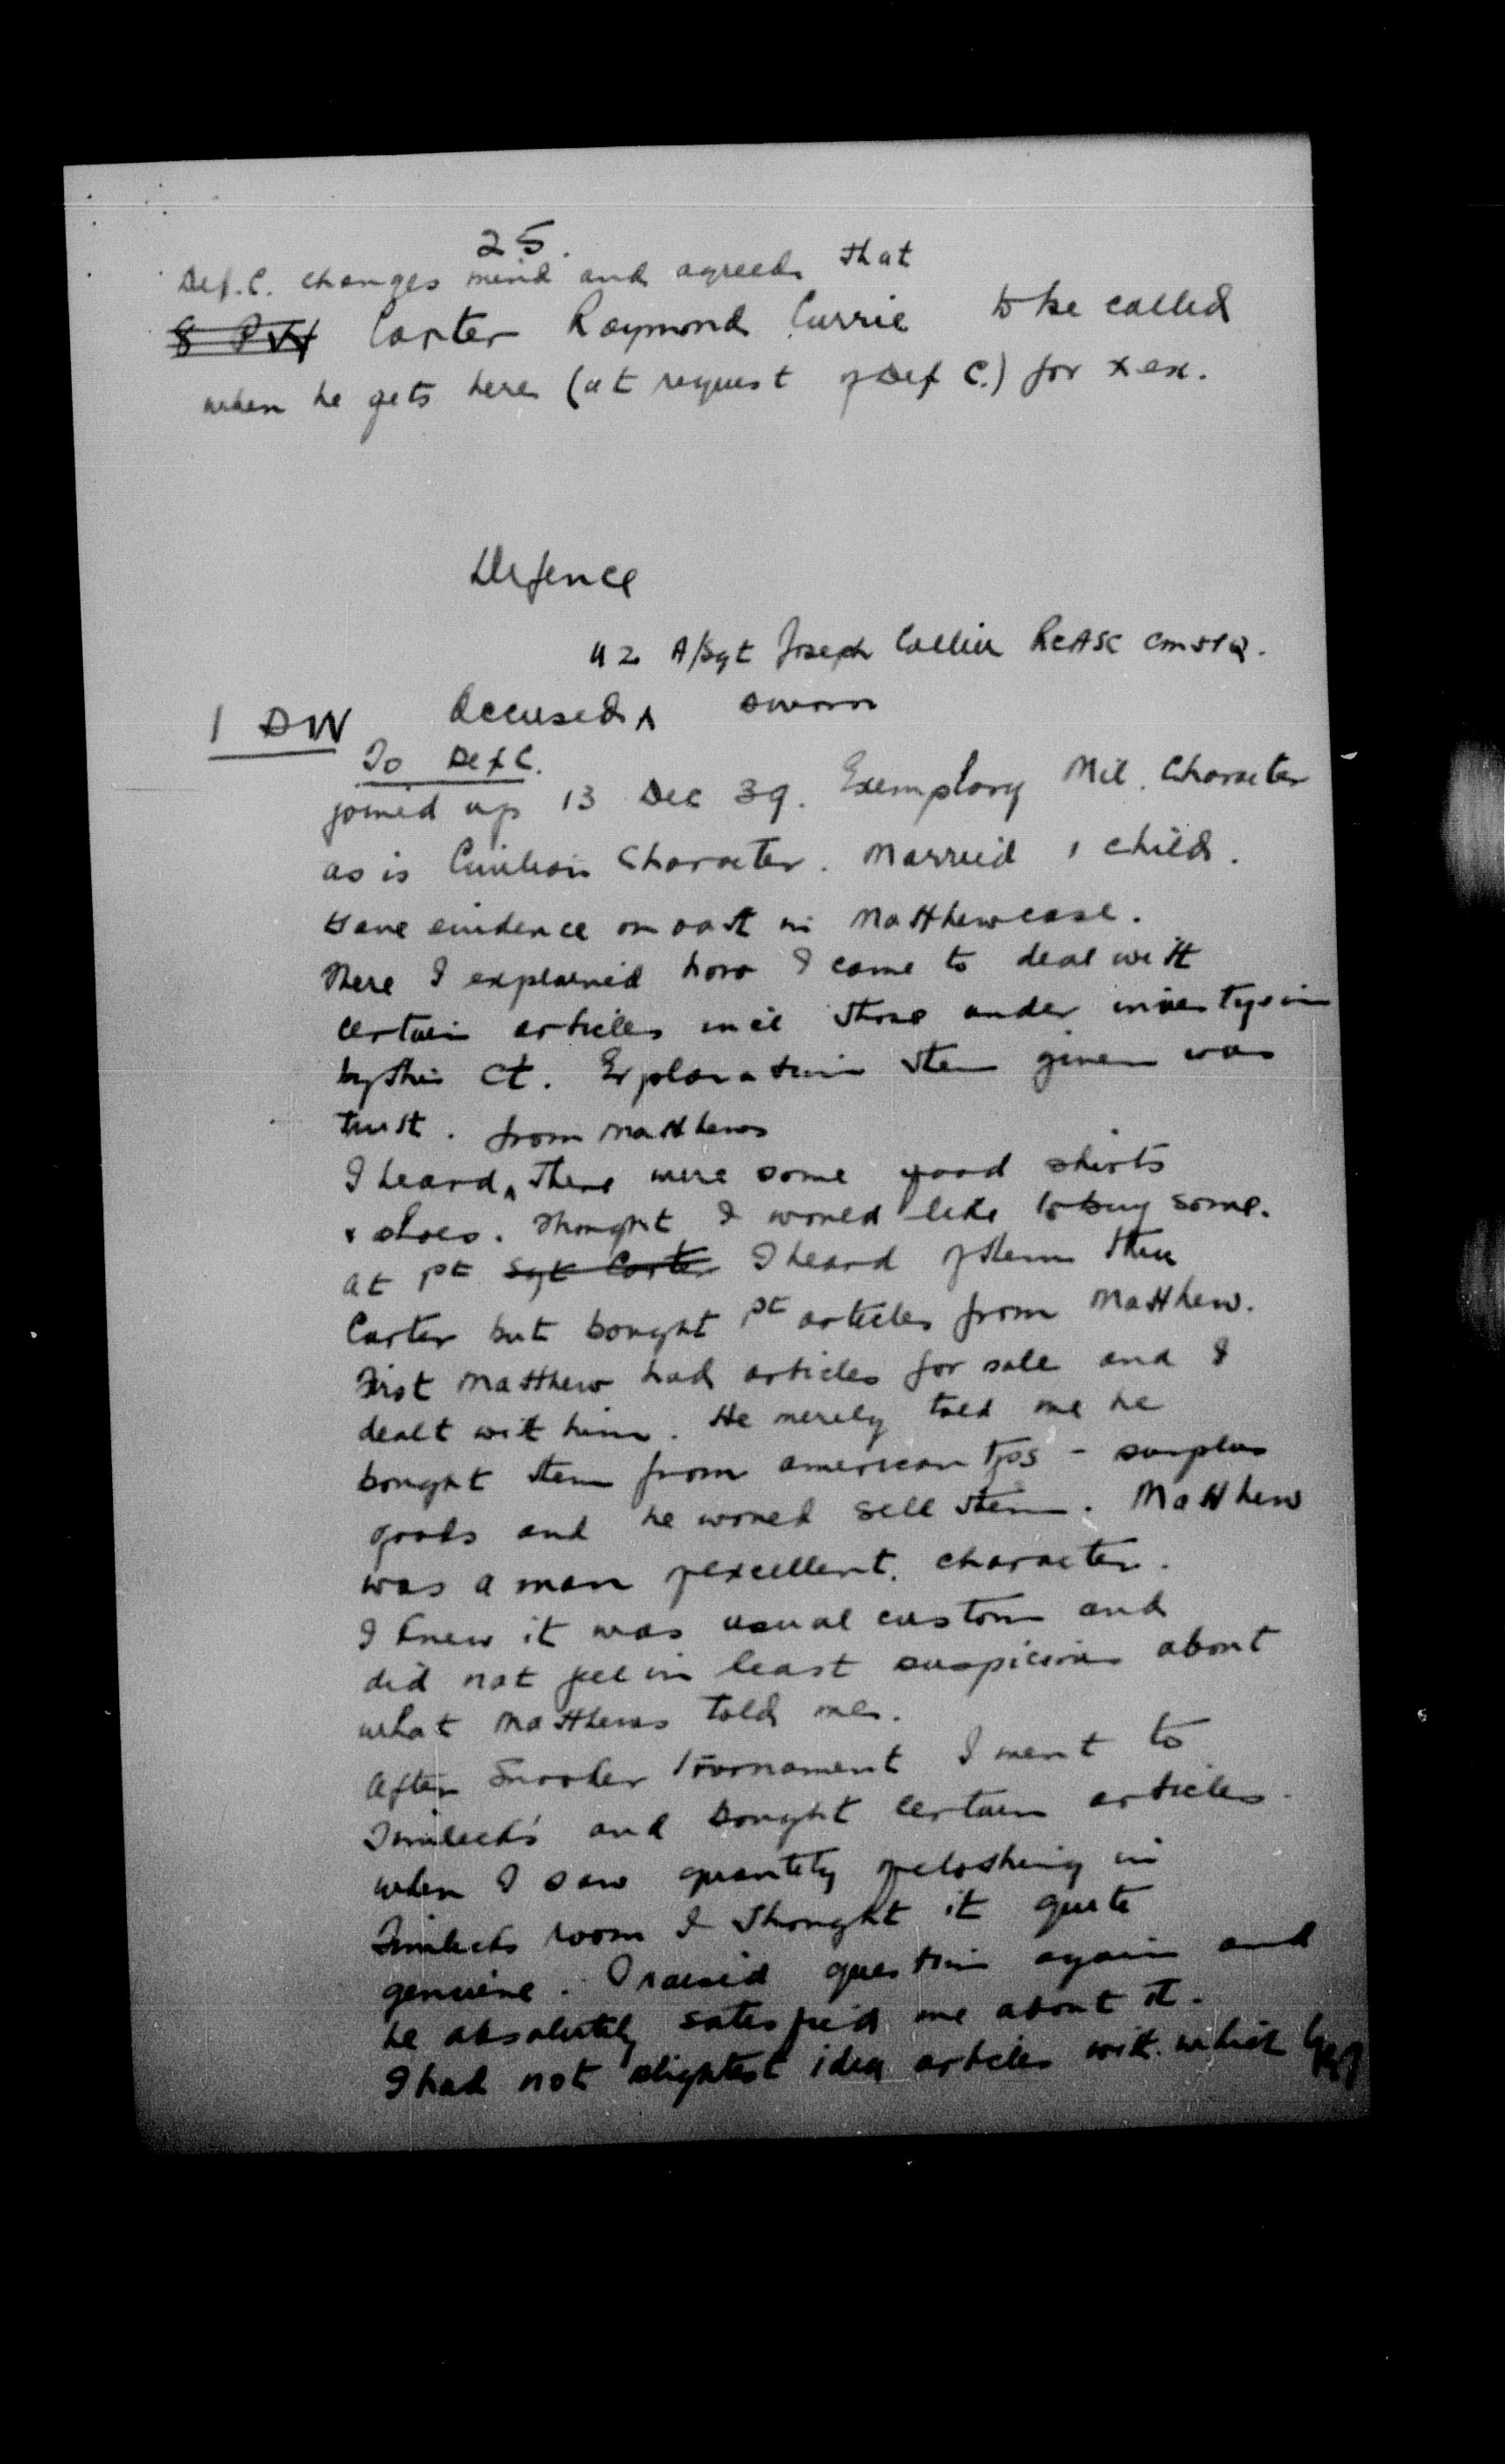 25.
Def. C. changes mind and agreeds that
8 PW Carter Raymond Currie to be called
when he gets here (at request of Def C.) for xex.
Defence
42 A/Sgt Joseph Collier RCASC
1 DW Accused ^ sworn
To Def C.
joined up 13 Dec 39. Exemplary Mil. Character
as is Civilian Character. Married 1 child.
Gave evidence on oath in Matthew case.
There I explained how I came to deal with
certain articles incl those under
by this Ct. Explanation then given was
truth. from Matthews
I heard ^ there were some good shirts
& shoes. Thought I would like to buy some.
At 1st Sgt Carter I heard of them thru
Carter but bought 1st articles from Matthew.
First Matthew had articles for sale and I
dealt with him. He merely told me he
bought them from american tps - surplus
goods and he would sell them. Matthew
was a man of excellent character.
I knew it was usual custom and
did not feel in least suspicious about
what Matthews told me.
After Snooker Tournament I went to
and bought certain articles.
when I saw quantity of clothing in
room I thought it quite
genuine. I raised question again and
he absolutely satisfied me about it.
I had not slightest idea articles with which